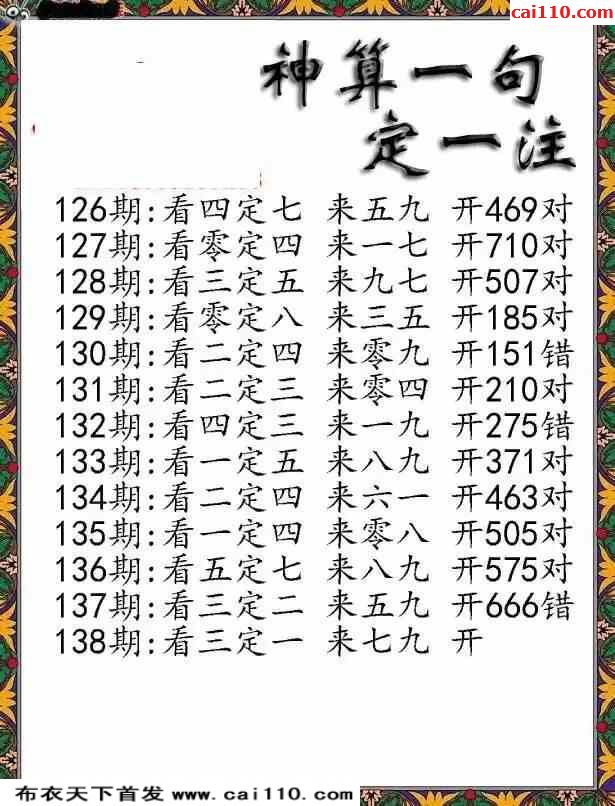 cai110.com
神算一句
定一注
126期:看四定七 来五九 开469对
127期:看零定四 来一七 开710对
128期:看三定五 来九七 开507对
129期:看零定八 来三五 开185对
130期:看二定四 来零九 开151错
131期:看二定三 来零四 开210对
132期:看四定三 来一九 开275错
133期:看一定五 来八九 开371对
134期:看二定四 来六一 开463对
135期:看一定四 来零八 开505对
136期:看五定七 来八九 开575对
137期:看三定二 来五九 开666错
138期:看三定一 来七九 开
布衣天下首发 www.cai110.com